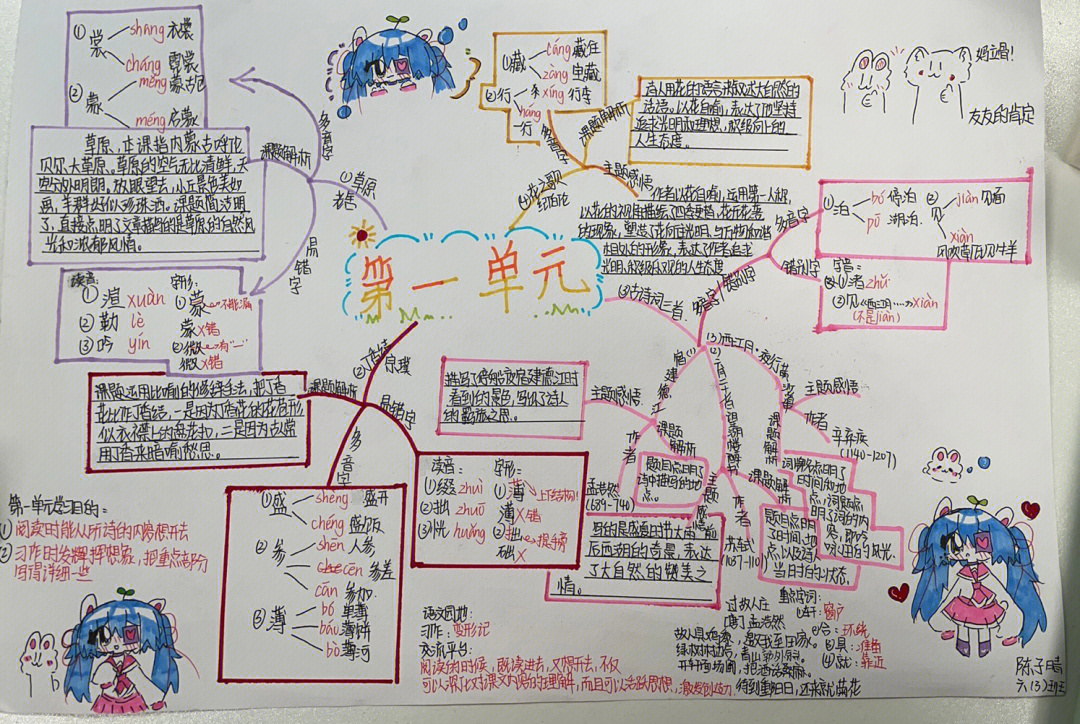 ① 裳 shang 衣裳
cháng 霓裳
② 蒙 měng 蒙古包
méng 启蒙
多音字
课题解析
草原，本课指内蒙古呼伦
贝尔大草原。草原的空气无比清鲜，天
空分外明朗，放眼望去，小丘景色美如
画，羊群好似珍珠洒。课题简洁明
了，直接点明了文章描写的是草原的自然风
光和浓郁风情。
①草原
老舍
易错字
读音：
① 渲 xuàn
② 勒 lè
③ 吟 yín
字形：
① 蒙
蒙 x错
② 微 有"一"
微 x错
①藏 cáng 藏住
zàng 宝藏
②行 xíng 行走
háng 一行
多音字
课题解析
诗人用花的语言来叙述大自然的
话语。以花自喻，表达了他坚持
追求光明和理想，积极向上的
人生态度。
④花之歌
纪伯伦
主题感情
作者以花自喻，运用第一人称，
以花的视角描绘了四季更替，花开花落
的现象，塑造了走向往光明，与万物和谐
相处的花形象，表达了作者追求
光明，积极乐观的人生态度
妈立唱!
友友的肯定
第一单元
③古诗词三首
多音字
①泊 bó 停泊
pō 湖泊
②见 jiàn 见面
xiàn
风吹草低见牛羊
错别字
字音：
①渚 zhǔ
③见《西江月……》xiàn
(不是jiàn)
②丁香结
宗璞
课题解析
课题运用比喻的修辞手法，把丁香
花比作丁香结，一是因为丁香花的花苞形
似衣襟上的盘花扣，二是因为古人常
用丁香来暗喻愁思。
易错字
多音字
①盛 shèng 盛开
chéng 盛饭
②参 shēn 人参
cēn 参差
cān 参加
③薄 bó 单薄
báo 薄饼
bò 薄河
读音：
①缀 zhuì
②拙 zhuō
③恍 huǎng
字形：
①薄 上下结构！
薄 x错
②拙 提手旁
础 x
(1)宿建德江
主题感情
描写了停船夜宿建德江时
看到的景色，写出了诗人
的羁旅之思。
作者
孟浩然
(689-740)
课题解析
题目点明了
诗中描写的地
点。
(2)六月二十七日望湖楼醉书
主题感情
写的是盛夏时节大雨前
后西湖的奇景，表达
了大自然的赞美之
情。
作者
苏轼
(1037-1101)
课题解析
题目点明
了时间、地
点以及诗人
当日时的状态。
(3)西江月·夜行黄沙道中
主题感情
作者
辛弃疾
(1140-1207)
课题解析
词牌名点明了
时间和地
点，词题点
明了词的内
容，即吟
咏山田的风光。
第一单元学习目的：
①阅读时能从所诗的内容想开去
②习作时发挥想象，把重点部分
写得详细一些
语文园地：
习作：变形记
交流平台：
阅读的时候，既读进去，又想开去，不仅
可以深化对课文内容的理解，而且可以活跃思想，激发创造力
过故人庄
[唐] 孟浩然
故人具鸡黍，邀我至田家。
绿树村边合，青山郭外斜。
开轩面场圃，把酒话桑麻。
待到重阳日，还来就菊花
重点字词：
①轩：窗户
②合：环绕
③具：准备
④就：靠近
陈子晴
六(3)班